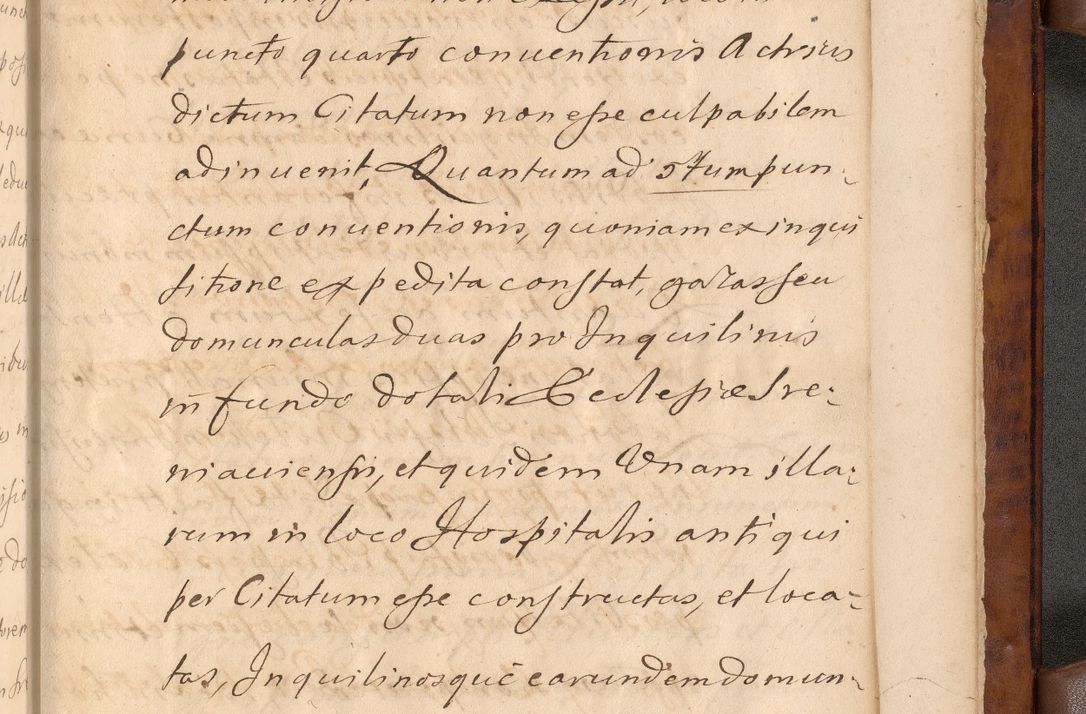 puncto quarto conventionis Actoreus
dictum Citatum non esse culpabilem
adinuenit, Quantum ad 5tum pun-
ctum conuentionis, quoniam ex inqui
sitione expedita constat, gazas seu
domunculas duas pro Inquilinis
in fundo dotali Ecclesiæ Ire-
niaciensis, et quidem Vnam illa-
rum in loco Hospitalis antiqui
per Citatum esse constructas, et loca-
tas, Inquilinosque earundem domun-